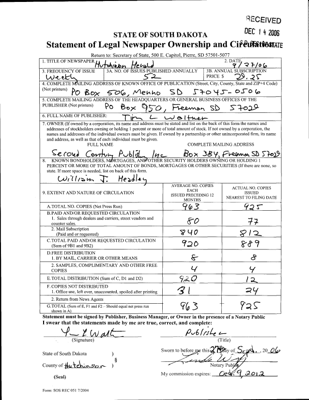 RECEIVED
DEC 14 2006
STATE OF SOUTH DAKOTA
Statement of Legal Newspaper Ownership and
Return to: Secretary of State, 500 E. Capitol, Pierre, SD 57501-5077
1. TITLE OF NEWSPAPER Hutchinson Herald
2. DATE 9/27/06
3. FREQUENCY OF ISSUE
3A. NO. OF ISSUES PUBLISHED ANNUALLY
3B. ANNUAL SUBSCRIPTION PRICE $
52
4. COMPLETE MAILING ADDRESS OF KNOWN OFFICE OF PUBLICATION (Street, City, County, State and ZIP+4 Code) (Not printers)
PO Box 506, Menno SD 57045-0506
5. COMPLETE MAILING ADDRESS OF THE HEADQUARTERS OR GENERAL BUSINESS OFFICES OF THE
PUBLISHER (Not printers) Po Box 950, Freeman SD 57029
6. FULL NAME OF PUBLISHER: Tim L Waltner
7. OWNER (If owned by a corporation, its name and address must be stated and list on the back of this form the names and
addresses of stockholders owning or holding 1 percent or more of total amount of stock. If not owned by a corporation, the
names and address of the individual owners must be given. If owned by a partnership or other unincorporated firm, its name
and address, as well as that of each individual must be given.
FULL NAME COMPLETE MAILING ADDRESS
Second Century Publ Inc Box 384 Freeman SD 57029
8. KNOWN BONDHOLDERS, MORTGAGEES, AND OTHER SECURITY HOLDERS OWNING OR HOLDING 1
PERCENT OR MORE OF TOTAL AMOUNT OF BONDS, MORTGAGES OR OTHER SECURITIES (If there are none, so
state. If more space is needed, list on back of this form.
William J. Headley
9. EXTENT AND NATURE OF CIRCULATION
AVERAGE NO. COPIES EACH ISSUED PRECEDING 12 MONTHS
ACTUAL NO. COPIES ISSUED NEAREST TO FILING DATE
A. TOTAL NO. COPIES (Net Press Run) 963 925
B. PAID AND/OR REQUESTED CIRCULATION
1. Sales through dealers and carriers, street vendors and
counter sales. 80 77
2. Mail Subscription
(Paid and or requested) 840 812
C. TOTAL PAID AND/OR REQUESTED CIRCULATION
(Sum of 9B1 and 9B2) 920 889
D. FREE DISTRIBUTION
1. BY MAIL, CARRIER OR OTHER MEANS
2. SAMPLES, COMPLIMENTARY AND OTHER FREE
COPIES 4 4
E. TOTAL DISTRIBUTION (Sum of C, D1 and D2)
F. COPIES NOT DISTRIBUTED
1. Office use, left over, unaccounted, spoiled after printing 31 24
2. Return from News Agents
G. TOTAL (Sum of E, F1 and F2 - Should equal net press run
shown in A) 963 925
Statement must be signed by Publisher, Business Manager, or Owner in the presence of a Notary Public
I swear that the statements made by me are true, correct, and complete:
Publisher
(Signature) (Title)
State of South Dakota )
County of Hutchinson )
Sworn to before me this 27th day of Sept, 2006
Notary Public
(Seal)
My commission expires: Oct 9, 2012
Form: SOS REC 051 7/2004